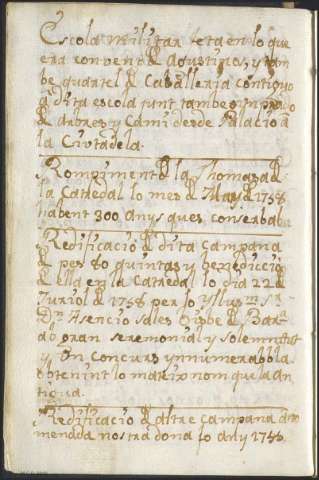 Escola militar feta en lo que
era convent de Agustinos, y tam
be quartel de Caballeria contiguo
á dita escola junt tambe
de arbres y Cami desde Palacio á
la Ciutadela.
Rompiment de la Thomasa de
la Catredal lo mes de Mayg de 1758
habent 300 anys ques conserbaba
Redificació de dita Campana
de pes 80 quintas y benedicció
de ella en la Catredal lo dia 22 de
Juriol de 1758 per lo Yllm. Sr.
Dn. Asencio Sales Bisbe de Barª.
ab gran seremonial y solemnitat
y Un Concurs ynnumerable
obtenint lo mateix nom que la an
tigua.
Redificació de altre campana ano
menada nostra dona lo any 1758.